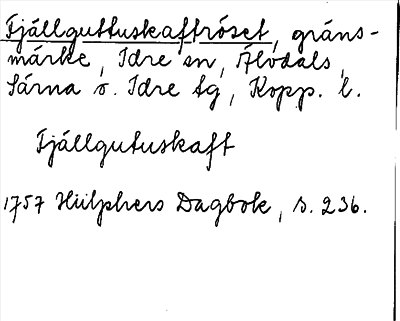 Fjällguttuskaftröset, gräns-
märke, Idre sn, Älvdals,
Särna o. Idre tg, Kopp. l.
Fjällgutuskaft
1757 Hülphers Dagbok, s. 236.